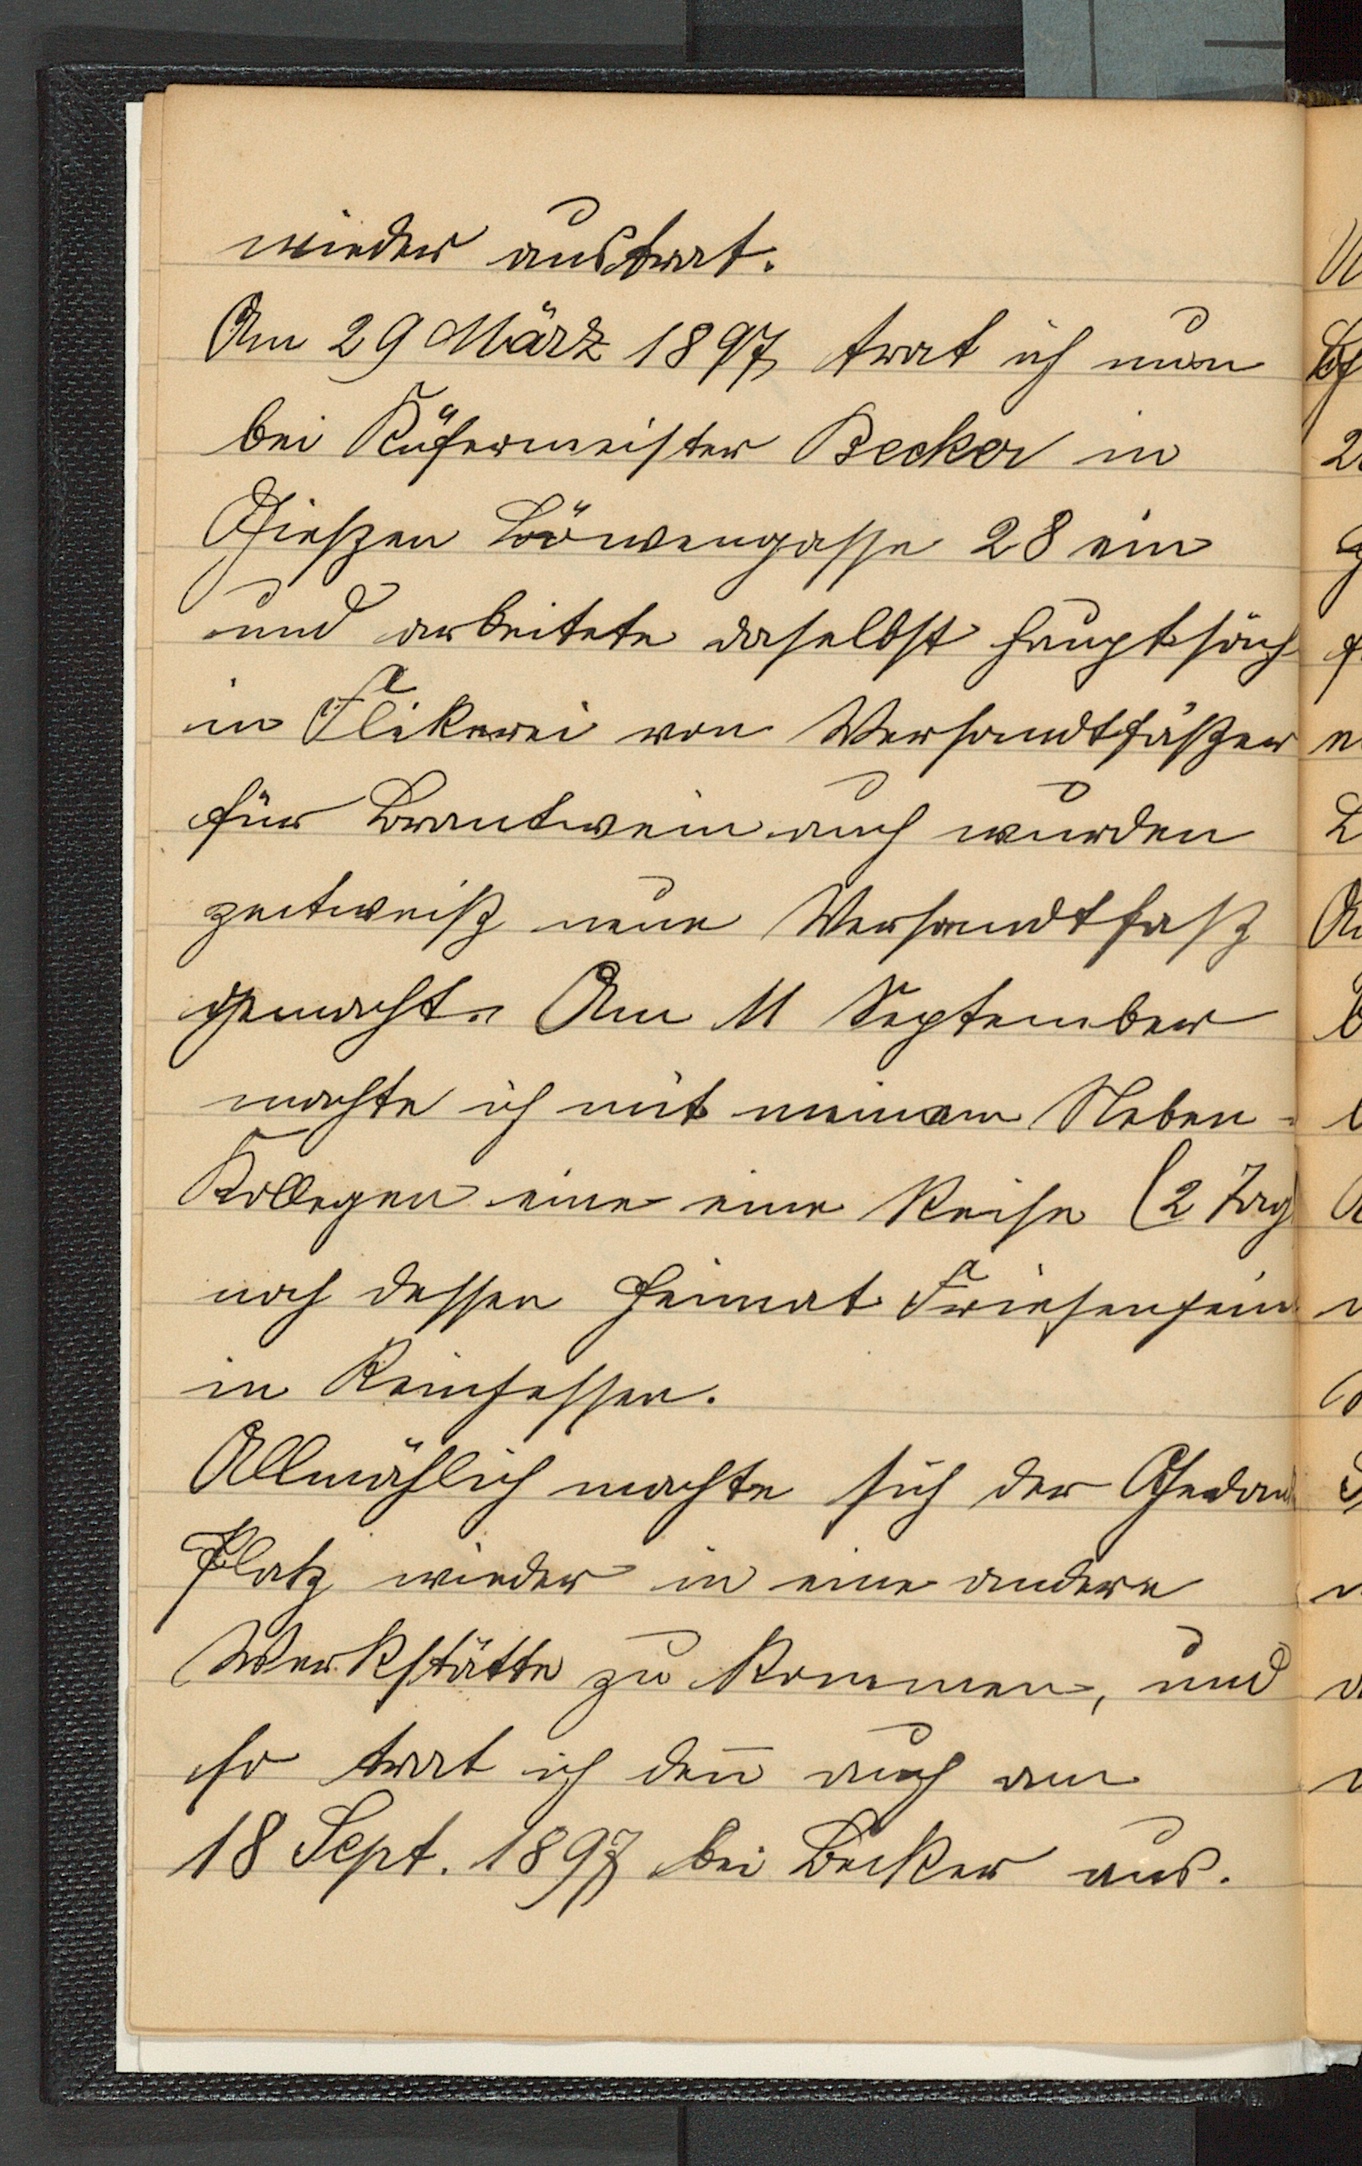 wieder austrat.
Am 29 März 1897 trat ich nun
bei Küfermeister Becker in
Gießen Löwengasse 28 ein
und arbeitete daselbst hauptsäch
in Flikerei von Versandtfäßer
für Brantwein auch wurden
zeitweiß neue Versandtfaß
gemacht. Am 11 September
machte ich mit meinem Neben-
Kollegen eine eine Reise (2 Tag
nach dessen Heimat Friesenheim
in Reinhessen.
Allmählich machte sich der Gedank
Platz wieder in eine andere
Werkstätte zu kommen, und
so trat ich deñ auch am
18 Sept. 1897 bei Becker aus.